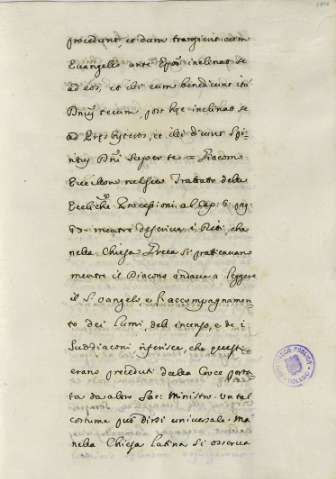 procedunt, et dum transeunt cum
Evangelio ante inclinat se
ad eos, et illi eum benedicunt
tecum, post hæc inclinat se
ad et illi dicunt Spi-
super te = Giacomo
nel suo Trattato delle
Eccliche Processioni al Cap: 6. pag:
mentre descrive i Riti, che
nella Chiesa Greca si praticavano
mentre il Diacono andava a leggere
il S. Vangelo e l'accompagnamen-
to dei Lumi, dell'incenso, e de i
Suddiaconi riferisce, che questi
erano preceduti dalla Croce porta-
ta da altro Sac: Ministro. Un tal
costume può dirsi universale. Ma
nella Chiesa Latina si osserva